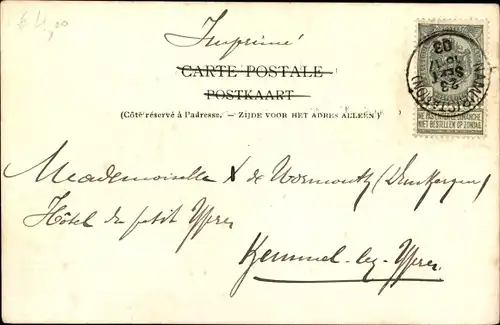 £4,00
Imprimé
CARTE POSTALE
POSTKAART
(Côté réservé à l'adresse. — ZIJDE VOOR HET ADRES ALLEEN)
NE PAS LIVRER LE DIMANCHE
NIET BESTELLEN OP ZONDAG
NAMUR (STATION)
23
SEPT
03
Mademoiselle X de Wormoutz (Dunkerque)
Hôtel du petit Ypres
Kemmel-lez-Ypres